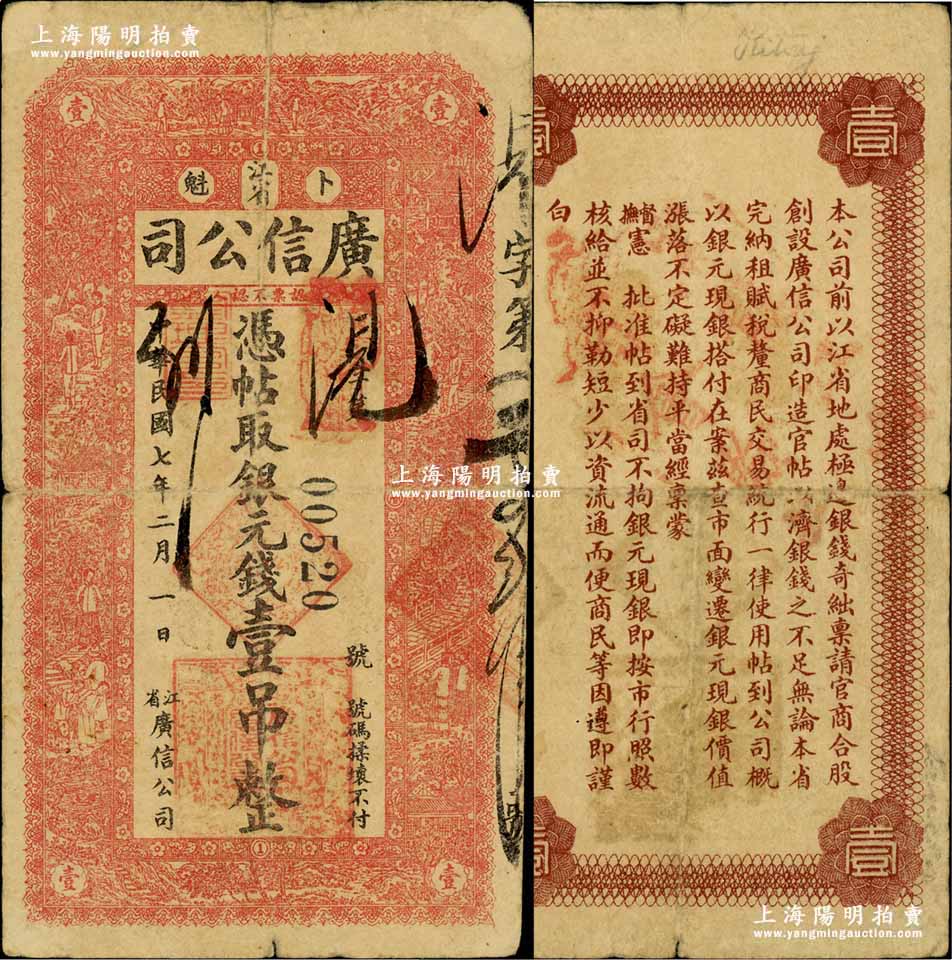 上海陽明拍賣
www.yangmingauction.com
壹 壹
卜 江省 魁
廣信公司
認票不認
憑帖取銀元錢壹吊整
00520
號
號碼揉壞不付
中華民國七年二月一日
江省廣信公司
字第
壹 壹
上海陽明拍賣
www.yangmingauction.com
壹 壹
本公司前以江省地處極邊銀錢奇絀稟請官商合股
創設廣信公司印造官帖以濟銀錢之不足無論本省
完納租賦稅釐商民交易統行一律使用帖到公司概
以銀元現銀搭付在案茲查市面變遷銀元現銀價值
漲落不定礙難持平當經稟蒙
督撫憲 批准帖到省司不拘銀元現銀即按市行照數
核給並不抑勒短少以資流通而便商民等因遵即謹
白
壹 壹
上海陽明拍賣
www.yangmingauction.com